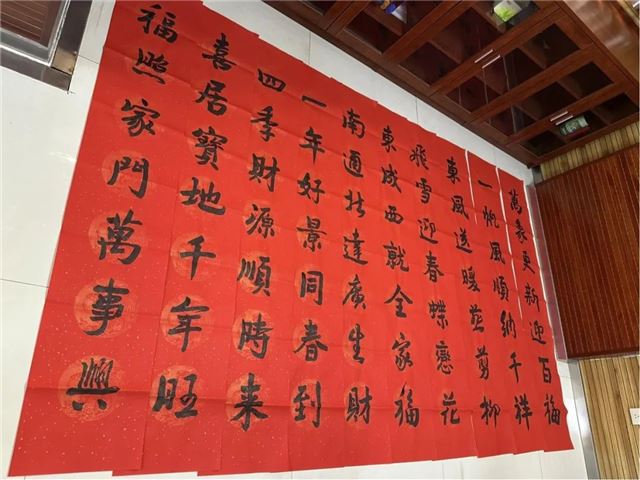 萬象更新迎百福
一帆風順納千祥
東風送暖燕剪柳
飛雪迎春蝶戀花
東成西就全家福
南通北達廣生財
一年好景同春到
四季財源順時来
喜居寶地千年旺
福照家門萬事興